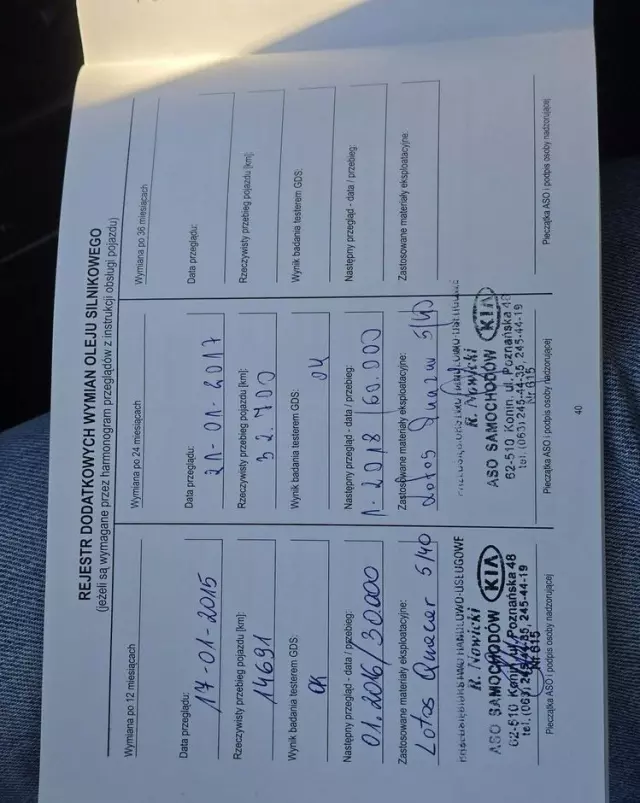 REJESTR DODATKOWYCH WYMIAN OLEJU SILNIKOWEGO
(jeżeli są wymagane przez harmonogram przeglądów z instrukcji obsługi pojazdu)
Wymiana po 12 miesiącach
Data przeglądu:
17-01-2015
Rzeczywisty przebieg pojazdu [km]:
14691
Wynik badania testerem GDS:
ok
Następny przegląd - data / przebieg:
01.2016/30.000
Zastosowane materiały eksploatacyjne:
Lotos 5/40
PRZEDSIĘBIORSTWO HANDLOWO-USŁUGOWE
R. Nowicki
ASO SAMOCHODÓW KIA
62-510 Konin, ul. Poznańska 48
tel. (063) 245-44-35, 245-44-19
Nr 615
Pieczątka ASO i podpis osoby nadzorującej
Wymiana po 24 miesiącach
Data przeglądu:
21-01-2017
Rzeczywisty przebieg pojazdu [km]:
32.700
Wynik badania testerem GDS:
ok
Następny przegląd - data / przebieg:
1-2018/60.000
Zastosowane materiały eksploatacyjne:
Lotos 5/40
R. Nowicki
ASO SAMOCHODÓW KIA
62-510 Konin, ul. Poznańska 48
tel. (063) 245-44-35, 245-44-19
Nr 615
Pieczątka ASO i podpis osoby nadzorującej
Wymiana po 36 miesiącach
Data przeglądu:
Rzeczywisty przebieg pojazdu [km]:
Wynik badania testerem GDS:
Następny przegląd - data / przebieg:
Zastosowane materiały eksploatacyjne:
Pieczątka ASO i podpis osoby nadzorującej
40